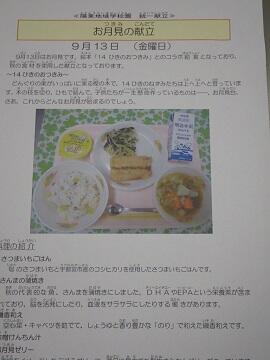 ≪陽東地域学校園 統一献立≫
お月見の献立
つきみ こんだて
9月13日 (金曜日)
9月13日はお月見です。絵本「14ひきのおつきみ」とのコラボ給食となっており、
秋の食材を使用した献立となっております。
～14ひきのおつきみ～
どんぐりの実がいっぱいに実る樫の木で、14ひきのねずみたちは上へ上へと登っていき
ます。木の枝を切り、ひもで結んで、子供たちが一生懸命作っているものは…、お月見台。
さあ、これからどんなお月見が始まるのでしょう。
料理の紹介
さつまいもごはん
旬のさつまいもと宇都宮市産のコシヒカリを使用したさつまいもごはんです。
さんまの蒲焼き
秋の代表的な魚、さんまを蒲焼きにしました。DHAやEPAという栄養素が含ま
れており、脳を活発にしたり、血液をサラサラにしたりする働きがあります。
磯香和え
空心菜・キャベツを茹でて、しょうゆと香り豊かな「のり」で和えた磯香和えです。
けんちん汁
お月見ゼリー